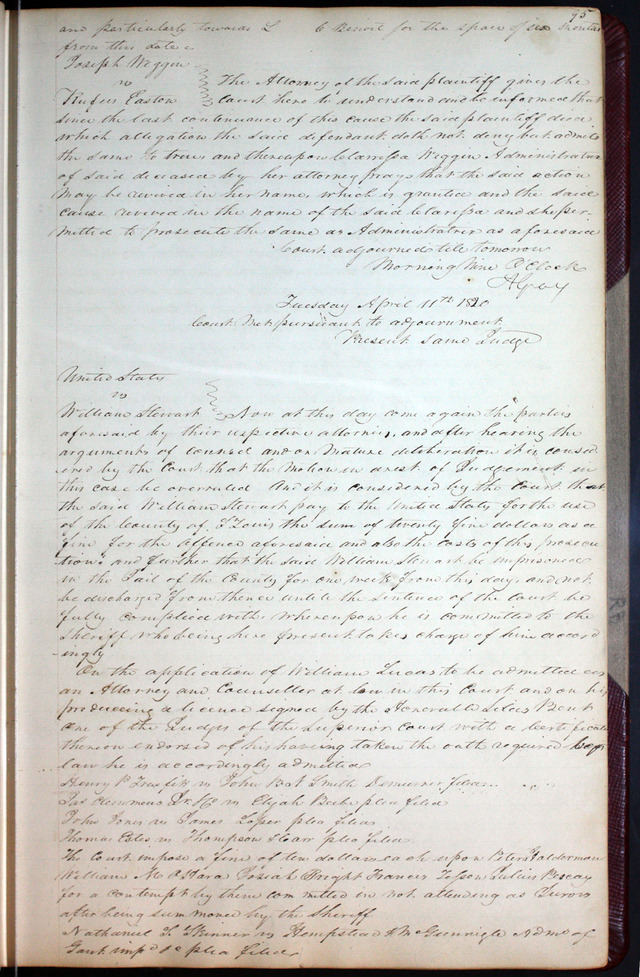 95
and particularly towards L C Benoit for the space of six months
from this date
Joseph Wiggin
vs
The Attorney of the said plaintiff gives the
Rufus Easton
court here to understand and be informed that
since the last continuance of this cause the said plaintiff died
which allegation the said defendant doth not deny but admits
the same to true, and thereupon Clarissa Wiggin Administratrix
of said deceased by her attorney prays that the said action
may be revived in her name, which is granted and the said
cause revived in the name of the said Clarissa and she per-
mitted to prosecute the same as Administratrix as aforesaid
Court adjourned till tomorrow
Morning Nine O'Clock
A Gray
Tuesday April 11th 1820
Court Met pursuant to adjournment
Present same Judge
United States
vs
William Stewart Now at this day come again the parties
aforesaid by their respective attornies, and after hearing the
arguments of counsel and on Mature deliberation it is consid
ered by the Court that the Motion in arrest of Judgement in
this case be overruled And it is considered by the Court that
the said William Stewart pay to the United States, for the use
of the County of St Louis the sum of twenty five dollars as a
fine for the offence aforesaid and also the costs of this prosecu
tion, and further that the said William Stewart be imprisoned
in the Jail of the County for one week from this day, and not
be discharged from thence until the sentence of the court be
fully complied with, whereupon he is committed to the
Sheriff who being here present takes charge of him accord
ingly
On the application of William Lucas to be admitted as
an Attorney and Counsellor at law in this Court and on his
producing a licence signed by the Honorable Silas Bent
one of the Judges of the Superior Court with a certificate
thereon endorsed of his having taken the oath required by
law he is accordingly admitted
Henry P vs John B N Smith Demurrer filed
Jas Clemmens Jr & Co vs Elijah Beebe plea filed
John Jones vs James Loper plea filed
Thomas Estes vs Thompson Starr plea filed
The Court impose a fine of ten dollars each upon Peter Halderman
William M O'Hara Josiah Bright Francis Tesson Julius Pescay
for a contempt by them committed in not attending as Jurors
after being summoned by the Sheriff
Nathaniel Skinner vs Hempstead & McGunnigle Adms of
Gantt impd &c plea filed